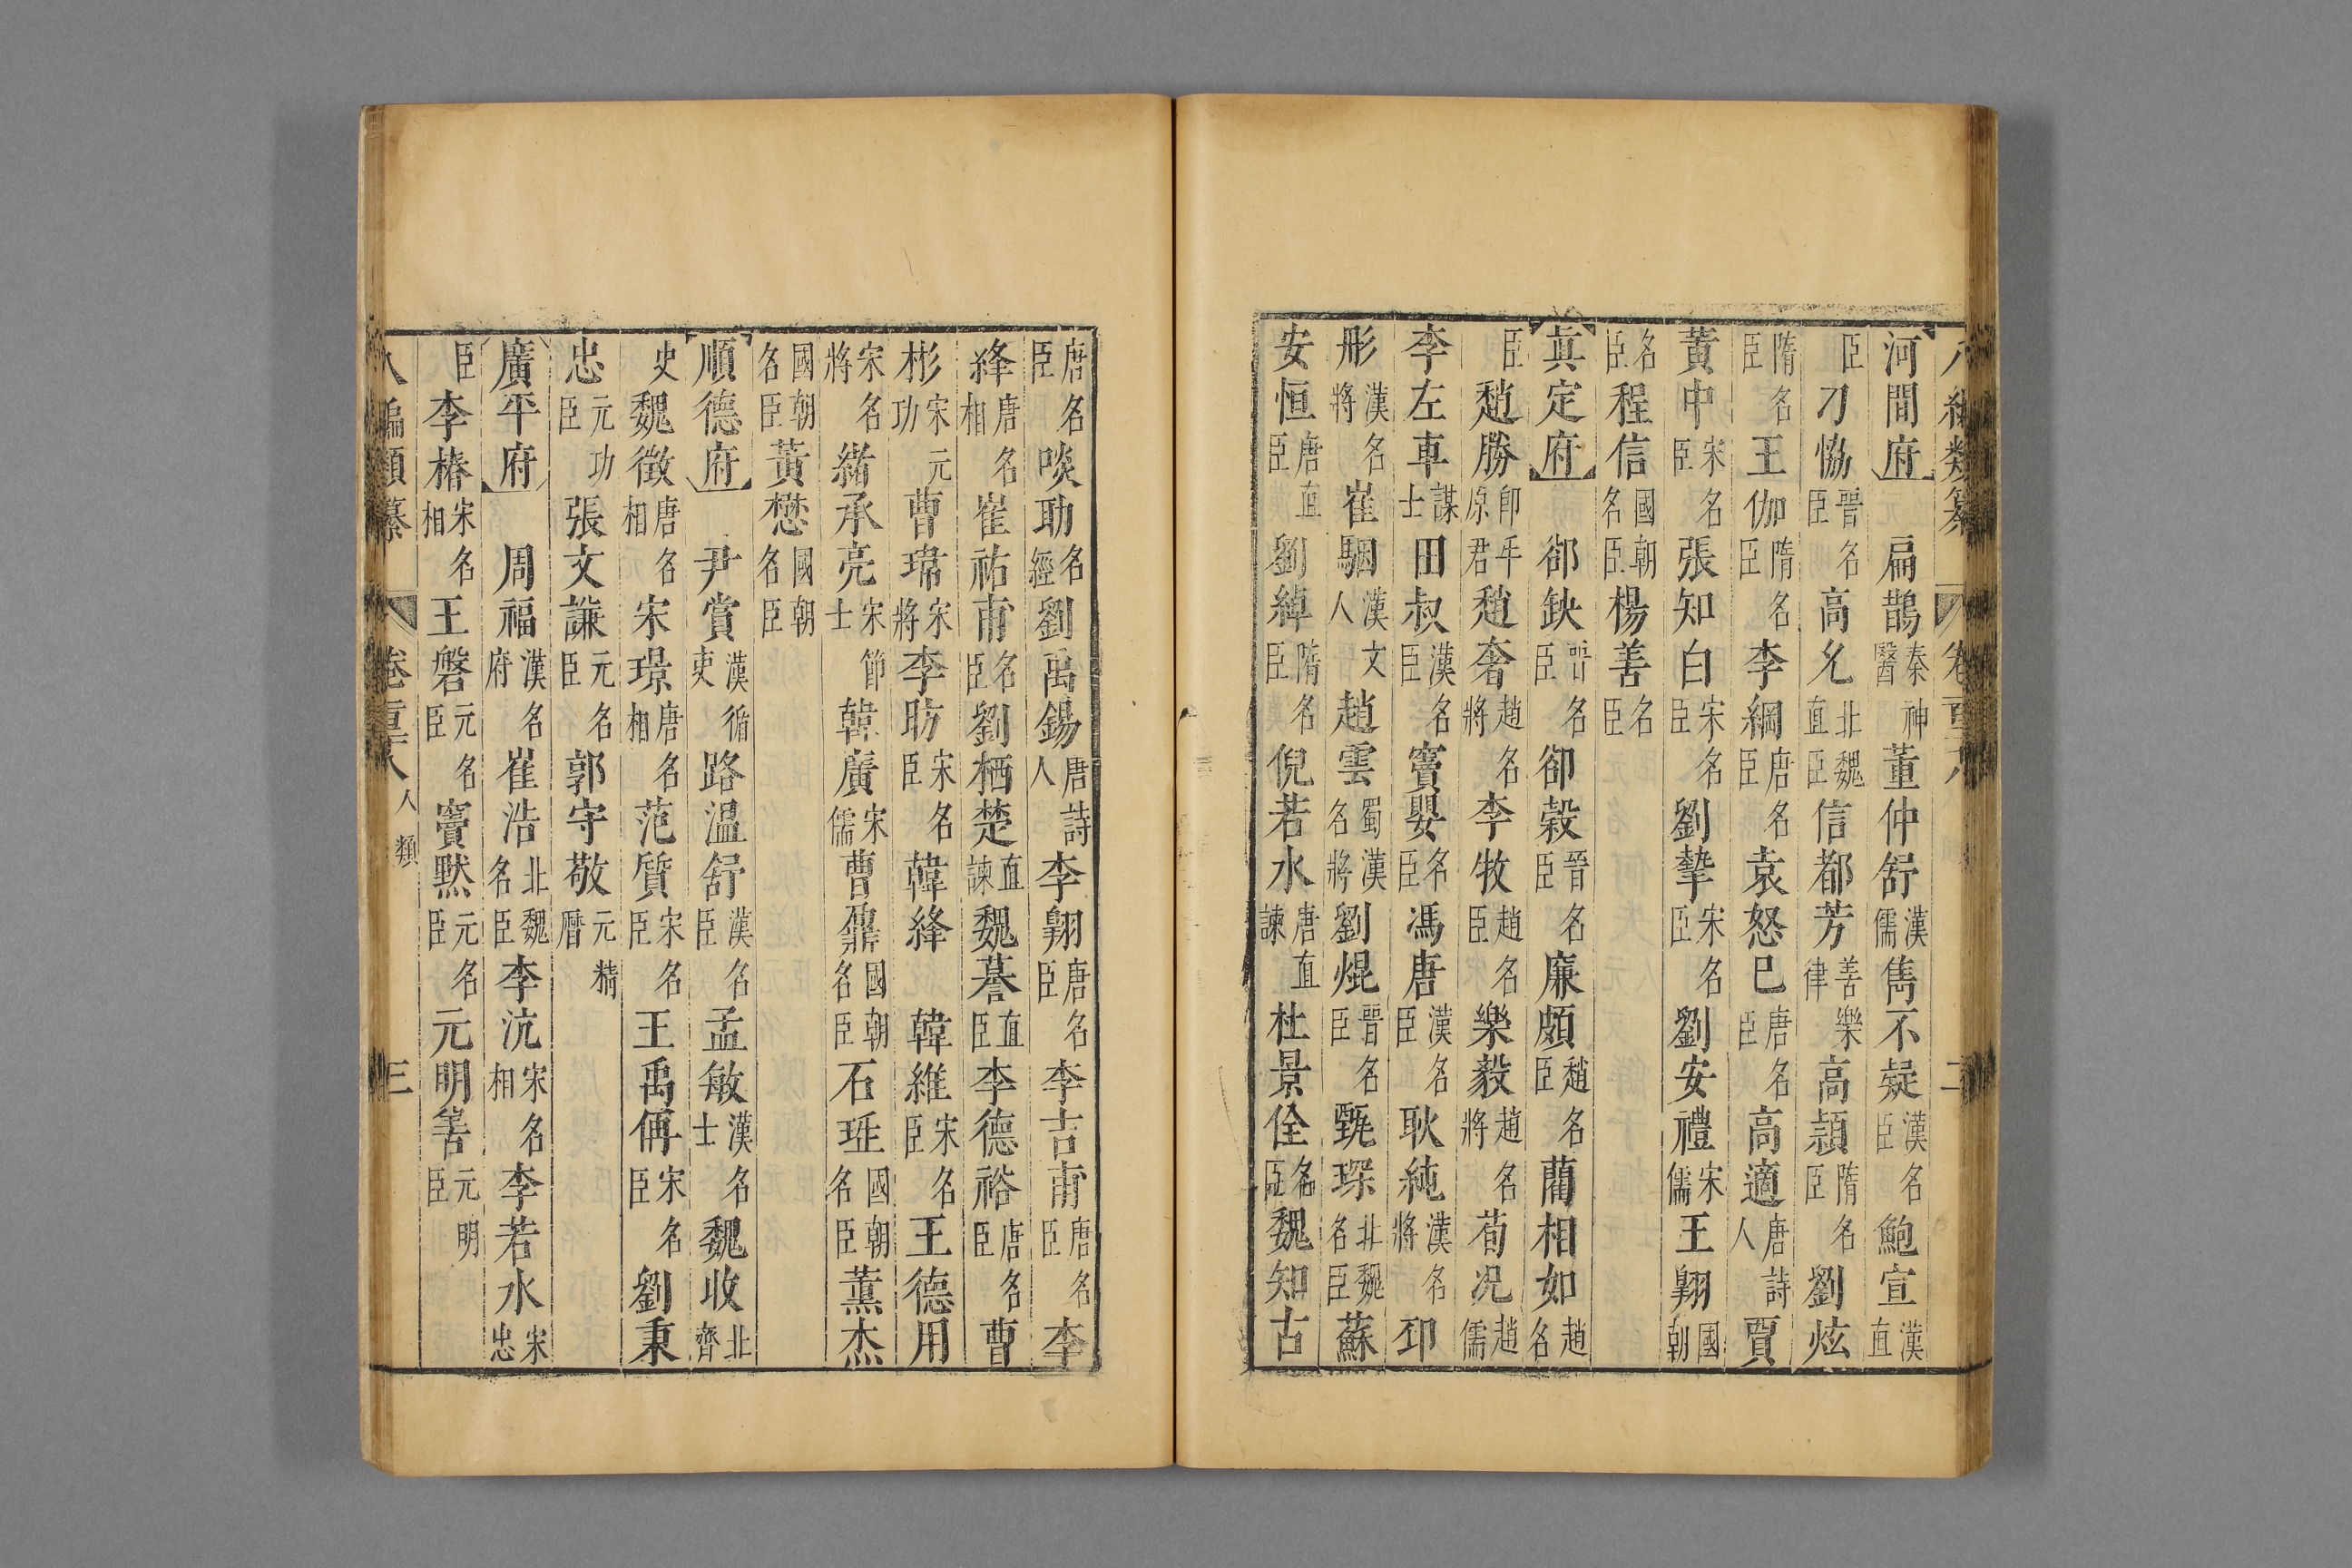 八編類纂 卷 二
河間府 扁鵲秦神醫 董仲舒漢儒 雋不疑漢名臣 鮑宣漢直
臣 刁恊晉名臣 高允北魏直臣 信都芳善樂律 高熲隋名臣 劉炫
隋名臣 王伽隋名臣 李綱唐名臣 袁恕巳唐名臣 高適唐詩人 賈
黃中宋名臣 張知白宋名臣 劉摯宋名臣 劉安禮宋儒 王翺國朝
名臣 程信國朝名臣 楊善名臣
眞定府 郤缺晉名臣 郤縠晉名臣 廉頗趙名臣 藺相如趙名
臣 趙勝卽平原君 趙奢趙名將 李牧趙名臣 樂毅趙名將 荀况趙儒
李左車謀士 田叔漢名臣 竇嬰名臣 馮唐漢名臣 耿純漢名將 邳
彤漢名將 崔駰漢文人 趙雲蜀漢名將 劉焜晉名臣 甄琛北魏名臣 蘇
安恒唐直臣 劉綽隋名臣 倪若水唐直諫 杜景佺名臣 魏知古
唐名臣 啖助名經 劉禹錫唐詩人 李翺唐名臣 李吉甫唐名臣 李
絳唐名相 崔祐甫名臣 劉栖楚直諫 魏謩直臣 李德裕唐名臣 曹
彬宋元功 曹瑋宋將 李昉宋名臣 韓絳 韓維宋名臣 王德用
宋名將 緒承亮宋節士 韓廣宋儒 曹鼐國朝名臣 石珤國朝名臣 薰杰
國朝名臣 黃懋國朝名臣
順德府 尹賞漢循吏 路溫舒漢名臣 孟敏漢名士 魏收北齊
史 魏徵唐名相 宋璟唐名相 范質宋名臣 王禹偁宋名臣 劉秉
忠元功臣 張文謙元名臣 郭守敬元精曆
廣平府 周福漢名府 崔浩北魏名臣 李沆宋名相 李若水宋忠
臣 李椿宋名相 王磐元名臣 竇默元名臣 元明善元明臣
八編類纂 卷 人類 三